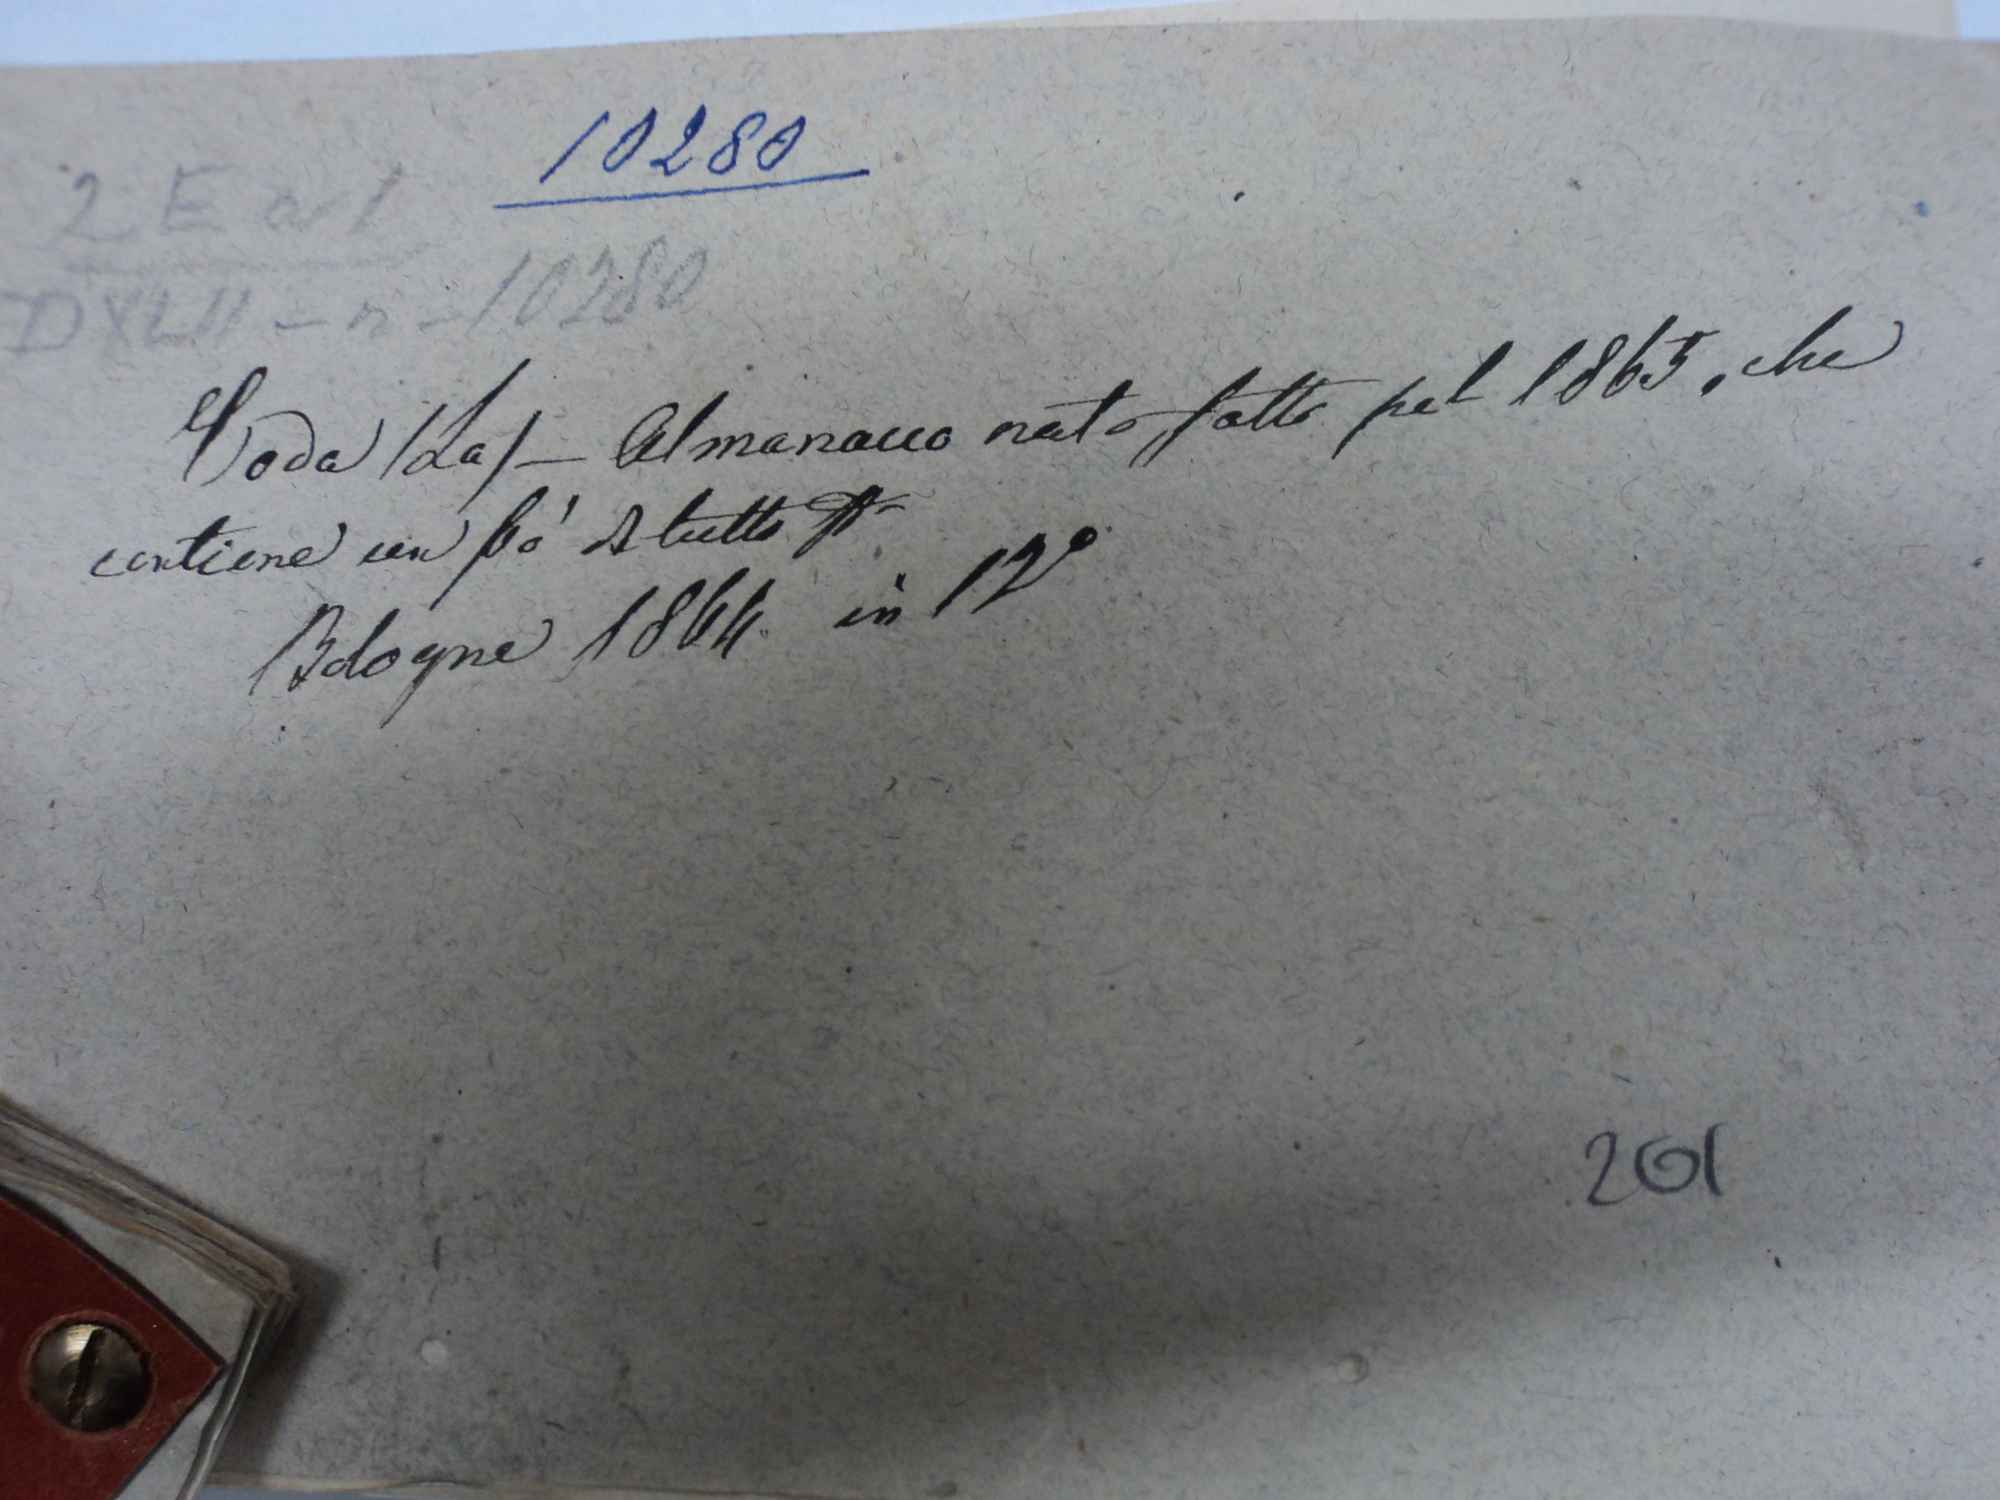 10280
2 E a 1
DXLII - n - 10280
Coda (La) - Almanacco nato, fatto pel 1865, che
contiene un pò di tutto
Bologne 1864. in 12°
201